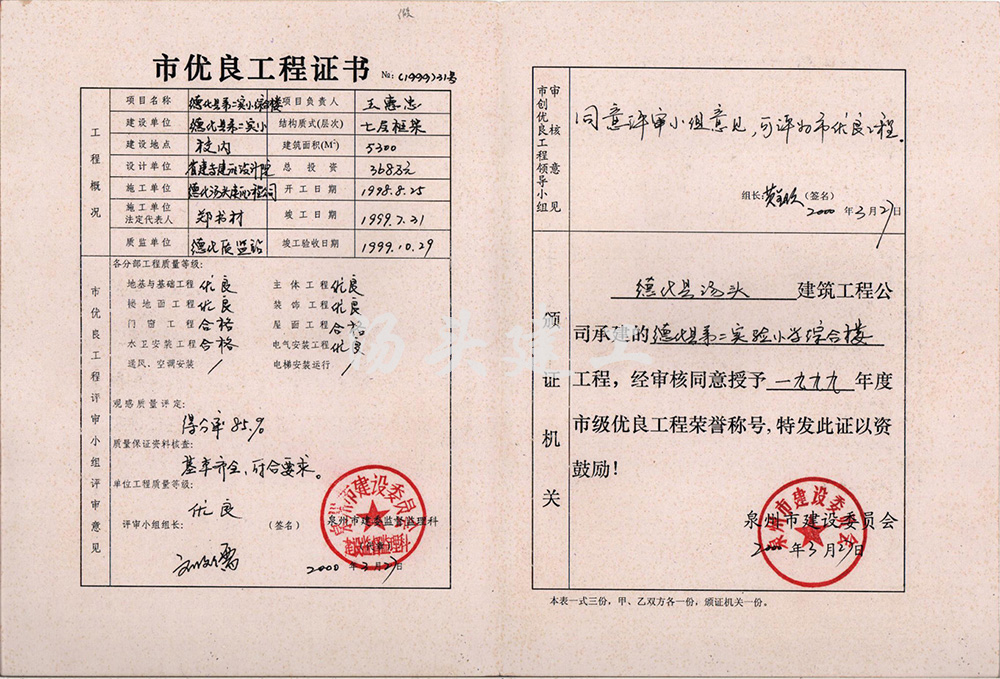 市优良工程证书 №:(1999)31号
工程概况
项目名称 德化县第二实小综合楼 项目负责人 王惠忠
建设单位 德化县第二实小 结构质式(层次) 七层框架
建设地点 校内 建筑面积(M²) 5300
设计单位 省建专建筑设计院 总投资 368万元
施工单位 德化汤头建筑工程公司 开工日期 1998.8.25
施工单位法定代表人 郑书材 竣工日期 1999.7.31
质监单位 德化质监站 竣工验收日期 1999.10.29
市优良工程评审小组评审意见
各分部工程质量等级:
地基与基础工程 优良 主体工程 优良
楼地面工程 优良 装饰工程 优良
门窗工程 合格 屋面工程 合格
水卫安装工程 合格 电气安装工程 优良
通风、空调安装 / 电梯安装运行 /
观感质量评定:
得分率85%
质量保证资料核查:
基本齐全、符合要求。
单位工程质量等级:
优良
评审小组组长: (签名)
泉州市建委监督监理科
2000年3月27日
市创优良工程领导小组审核意见
同意评审小组意见,可评为市优良工程.
组长: (签名)
2000年3月27日
颁证机关
德化县汤头 建筑工程公
司承建的德化县第二实验小学综合楼
工程，经审核同意授予 一九九九 年度
市级优良工程荣誉称号,特发此证以资
鼓励!
泉州市建设委员会
2000年3月27日
本表一式三份，甲、乙双方各一份，颁证机关一份。
汤头建工